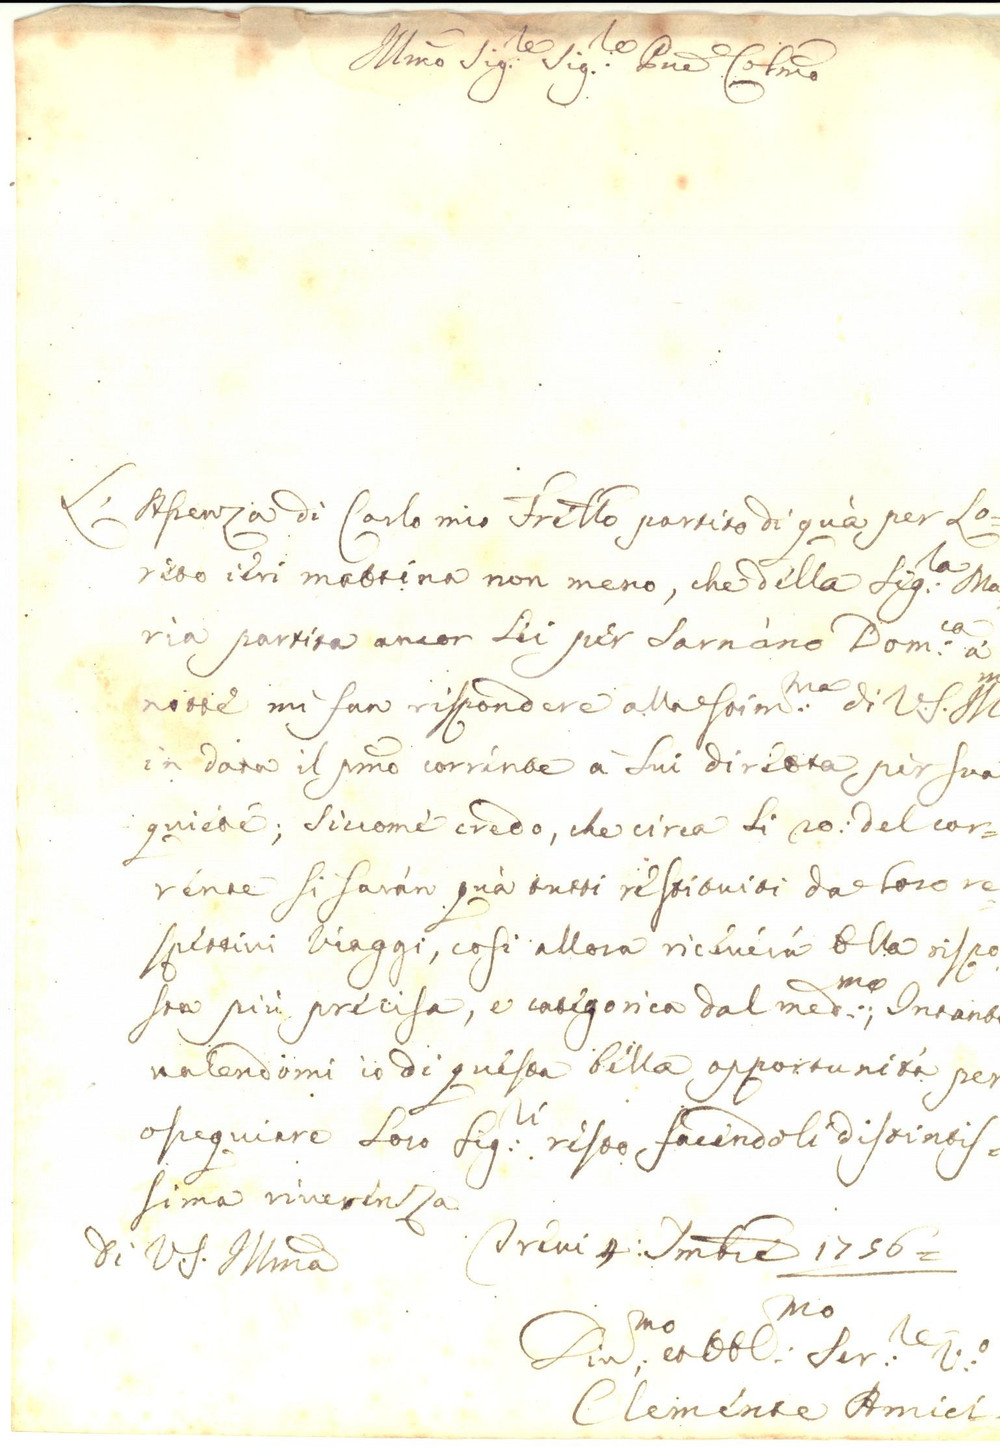 Illmo Sig:re Sig:re Prne Colmo
L'Assenza di Carlo mio Frello partito di quà per Lo=
reto ieri mattina non meno, che della Sig:ra Ma
ria partita ancor Lei per Sarnano Dom:ca à
notte mi fan rispondere alla stim:ma di V.S. Ill
in data il pmo corrente à Lui diretta per sua
quiete; siccome credo, che circa li 20: del cor=
rente si saran quà tutti restituiti da loro re=
spettivi Viaggi, così allora riceverà Ella rispo
sta più precisa, e categorica dal med:mo; Intanto
valendomi io di questa bella opportunità per
ossequiare Loro Sig:ri resto facendoli distintis=
sima riverenza
Di V.S. Illma
Trevi 4: 1756=
Div:mo et Obbl:mo Ser:re V:o
Clemente Amici